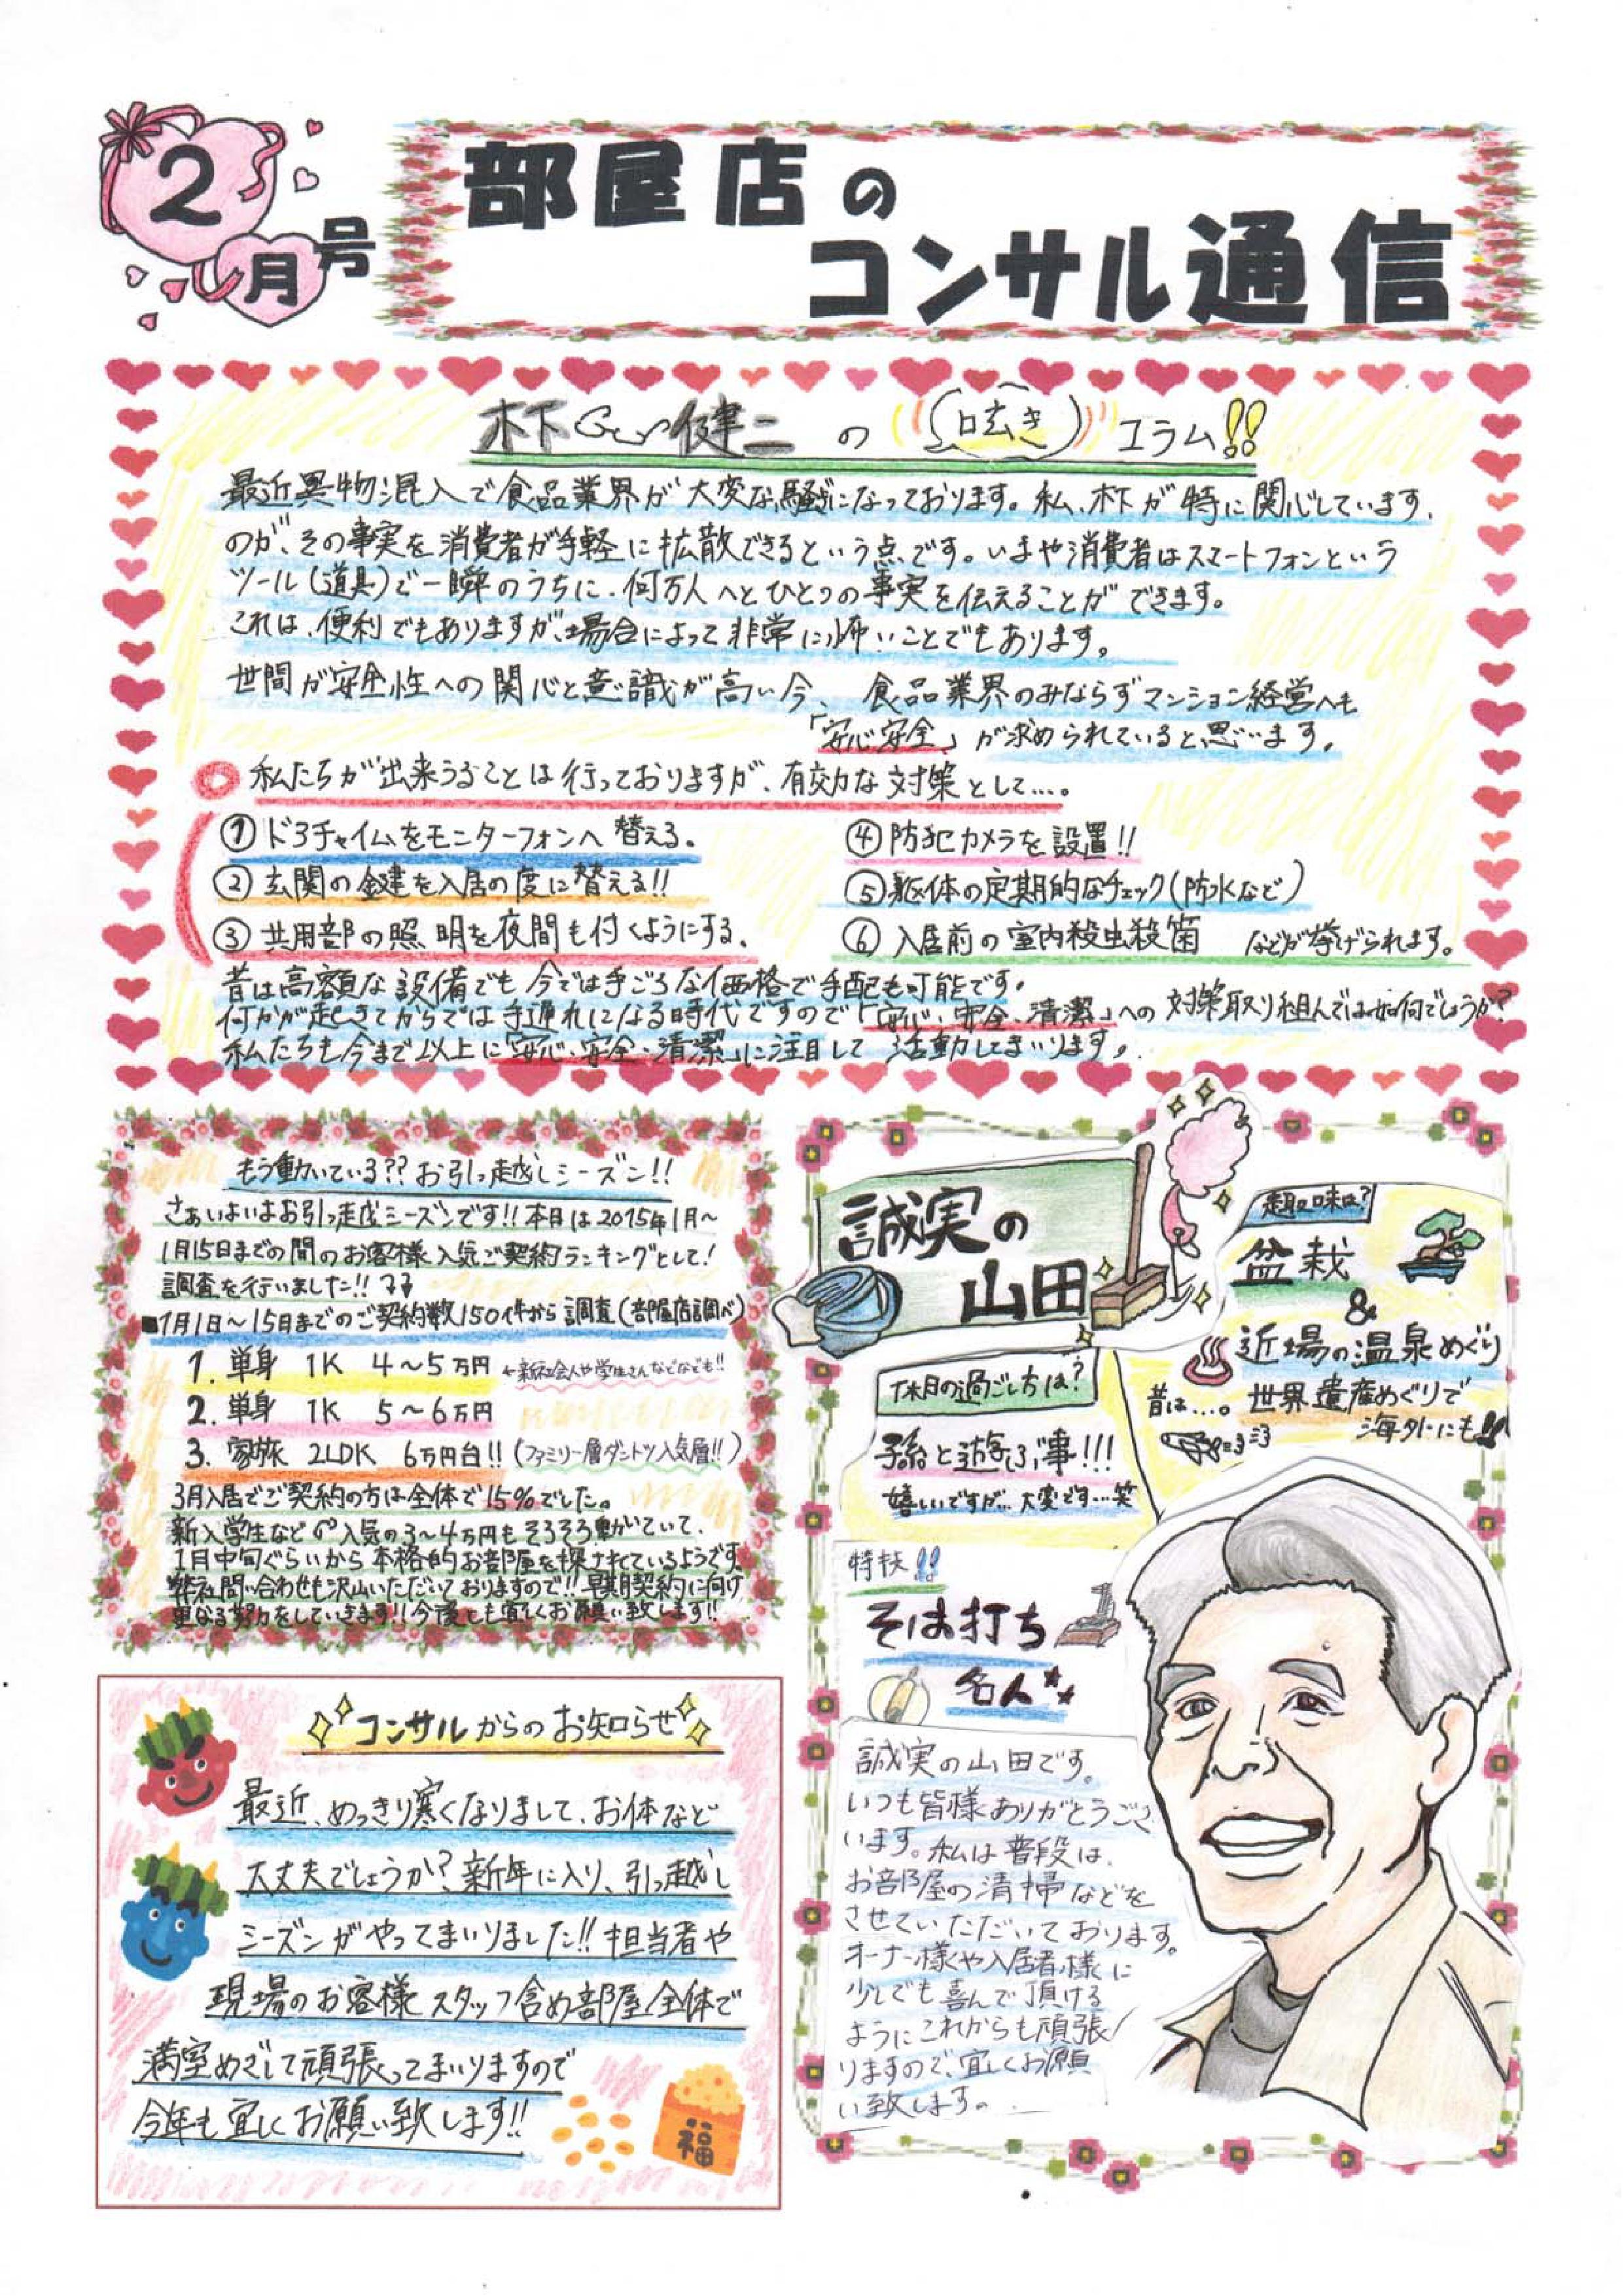 2月号
部屋店の
コンサル通信
木下 健二 の 呟き コラム!!
最近異物混入で食品業界が大変な騒ぎになっております。私、木下が特に関心しています
のが、その事実を消費者が手軽に拡散できるという点です。いまや消費者はスマートフォンという
ツール(道具)で一瞬のうちに、何万人へとひとつの事実を伝えることができます。
これは、便利でもありますが、場合によって非常に怖いことでもあります。
世間が安全性への関心と意識が高い今、食品業界のみならずマンション経営へも
「安心安全」が求められていると思います。
○私たちが出来うることは行っておりますが、有効な対策として…。
①ドアチャイムをモニターフォンへ替える。
②玄関の鍵を入居の度に替える!!
③共用部の照明を夜間も付くようにする。
④防犯カメラを設置!!
⑤躯体の定期的なチェック(防水など)
⑥入居前の室内殺虫殺菌 などが挙げられます。
昔は高額な設備でも今では手ごろな価格で手配も可能です。
何かが起きてからでは手遅れになる時代ですので「安心・安全・清潔」への対策取り組んでは如何でしょうか?
私たちも今まで以上に「安心・安全・清潔」に注目して活動してまいります。
もう動いている??お引っ越しシーズン!!
さぁいよいよお引っ越しシーズンです!!本日は2015年1月〜
1月15日までの間のお客様人気ご契約ランキングとして!
調査を行いました!!↓↓
■1月1日〜15日までのご契約数150件から調査(部屋店調べ)
1. 単身 1K 4〜5万円 ←新社会人や学生さんなどなども!!
2. 単身 1K 5〜6万円
3. 家族 2LDK 6万円台!!(ファミリー層ダントツ人気層!!)
3月入居でご契約の方は全体で15%でした。
新入学生など 人気の3〜4万円もそろそろ動いていて、
1月中旬ぐらいから本格的お部屋を探されているようです。
弊社問い合わせも沢山いただいておりますので!!早期契約に向け
更なる努力をしていきます!!今後とも宜しくお願い致します!!
コンサルからのお知らせ
最近、めっきり寒くなりまして、お体など
大丈夫でしょうか?新年に入り、引っ越し
シーズンがやってまいりました!!担当者や
現場のお客様スタッフ含め部屋店全体で
満室めざして頑張ってまいりますので
今年も宜しくお願い致します!!
福
誠実の
山田
趣味は?
盆栽
&
近場の温泉めぐり
昔は…。世界遺産めぐりで
海外にも!!
休日の過ごし方は?
孫と遊ぶ事!!!
嬉しいですが…大変です…笑
特技!!
そば打ち
名人
誠実の山田です。
いつも皆様ありがとうござ
います。私は普段は、
お部屋の清掃などを
させていただいております。
オーナー様や入居者様に
少しでも喜んで頂ける
ようにこれからも頑張
りますので、宜しくお願
い致します。